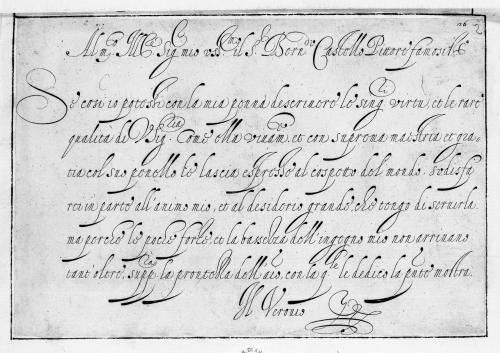 Al m.to M.co Sig. mio oss.mo il S.r Bern.do Castello Pittore famosiss.o
Se così io potessi con la mia penna descriuere le sing.li virtù, et le rare
qualità di V.Sig.ria Come ella viuam.te et con suprema maestria et gra-
tia col suo penello le lascia espresse al cospetto del mondo. sodisfa-
rei in parte all'animo mio, et al desiderio grande, che tengo di seruirla
ma perche le poche forze, et la bassezza dell'ingegno mio non arriuano
tant'oltre, supp.la la prontezza dell'aio, con la q.le le dedico la p.nte mostra.
Il Verouio